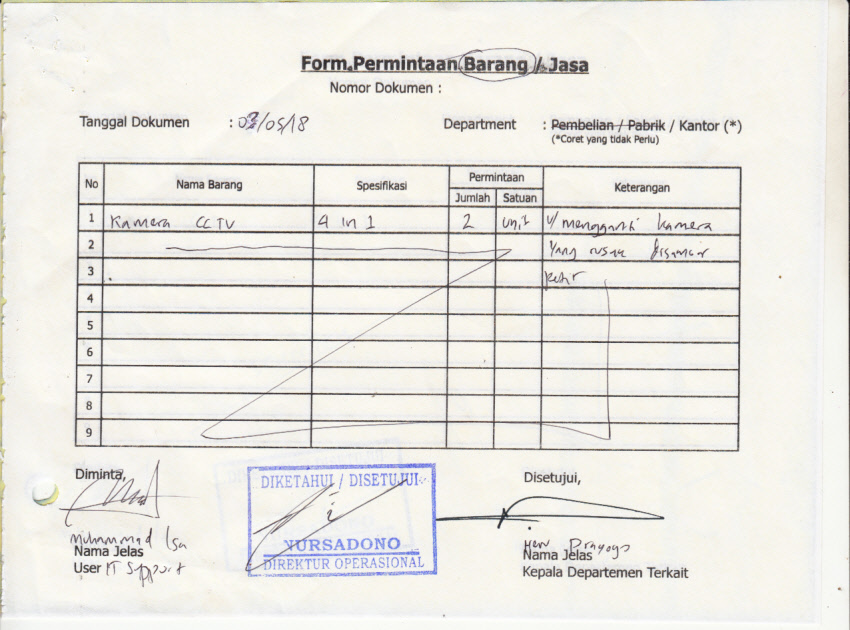 Form Permintaan Barang / Jasa
Nomor Dokumen :
Tanggal Dokumen : 03/05/18
Department : Pembelian / Pabrik / Kantor (*)
(*Coret yang tidak Perlu)
No Nama Barang Spesifikasi Permintaan Keterangan
Jumlah Satuan
1 Kamera CCTV 4 in 1 2 unit u/ mengganti kamera
2 yang rusak disambar
3 petir
4
5
6
7
8
9
Diminta,
Muhammad Isa
Nama Jelas
User IT Support
DIKETAHUI / DISETUJUI
NURSADONO
DIREKTUR OPERASIONAL
Disetujui,
Heru Prayogo
Nama Jelas
Kepala Departemen Terkait